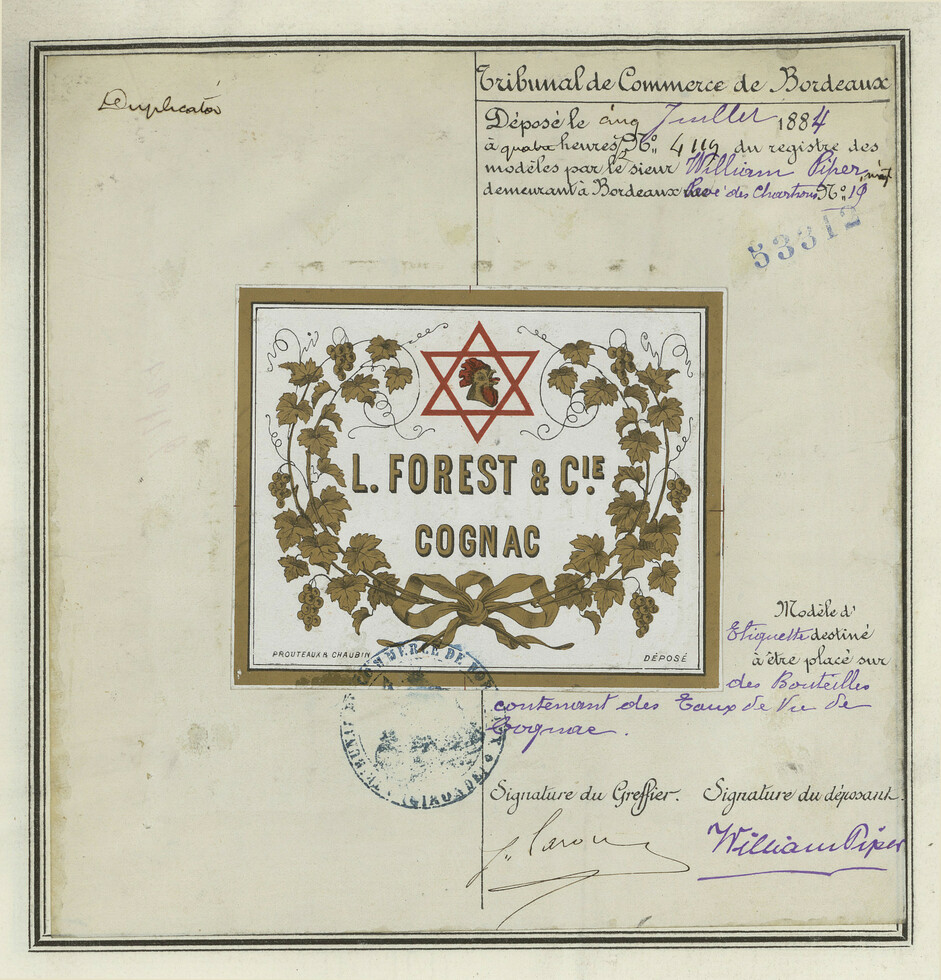 Duplicata
Tribunal de Commerce de Bordeaux
Déposé le cinq Juillet 1884
à quatre heures, No. 4119 du registre des
modèles par le sieur William Piper, négt
demeurant à Bordeaux Pavé des Chartrons No. 19
53312
L. FOREST & CIE.
COGNAC
PROUTEAUX & CHAUBIN
DÉPOSÉ
Modèle d'
Etiquette destiné
à être placé sur
des Bouteilles
contenant des Eaux de Vie de
Cognac.
COMMERCE DE BOR
(GIRONDE)
Signature du Greffier. Signature du déposant.
William Piper